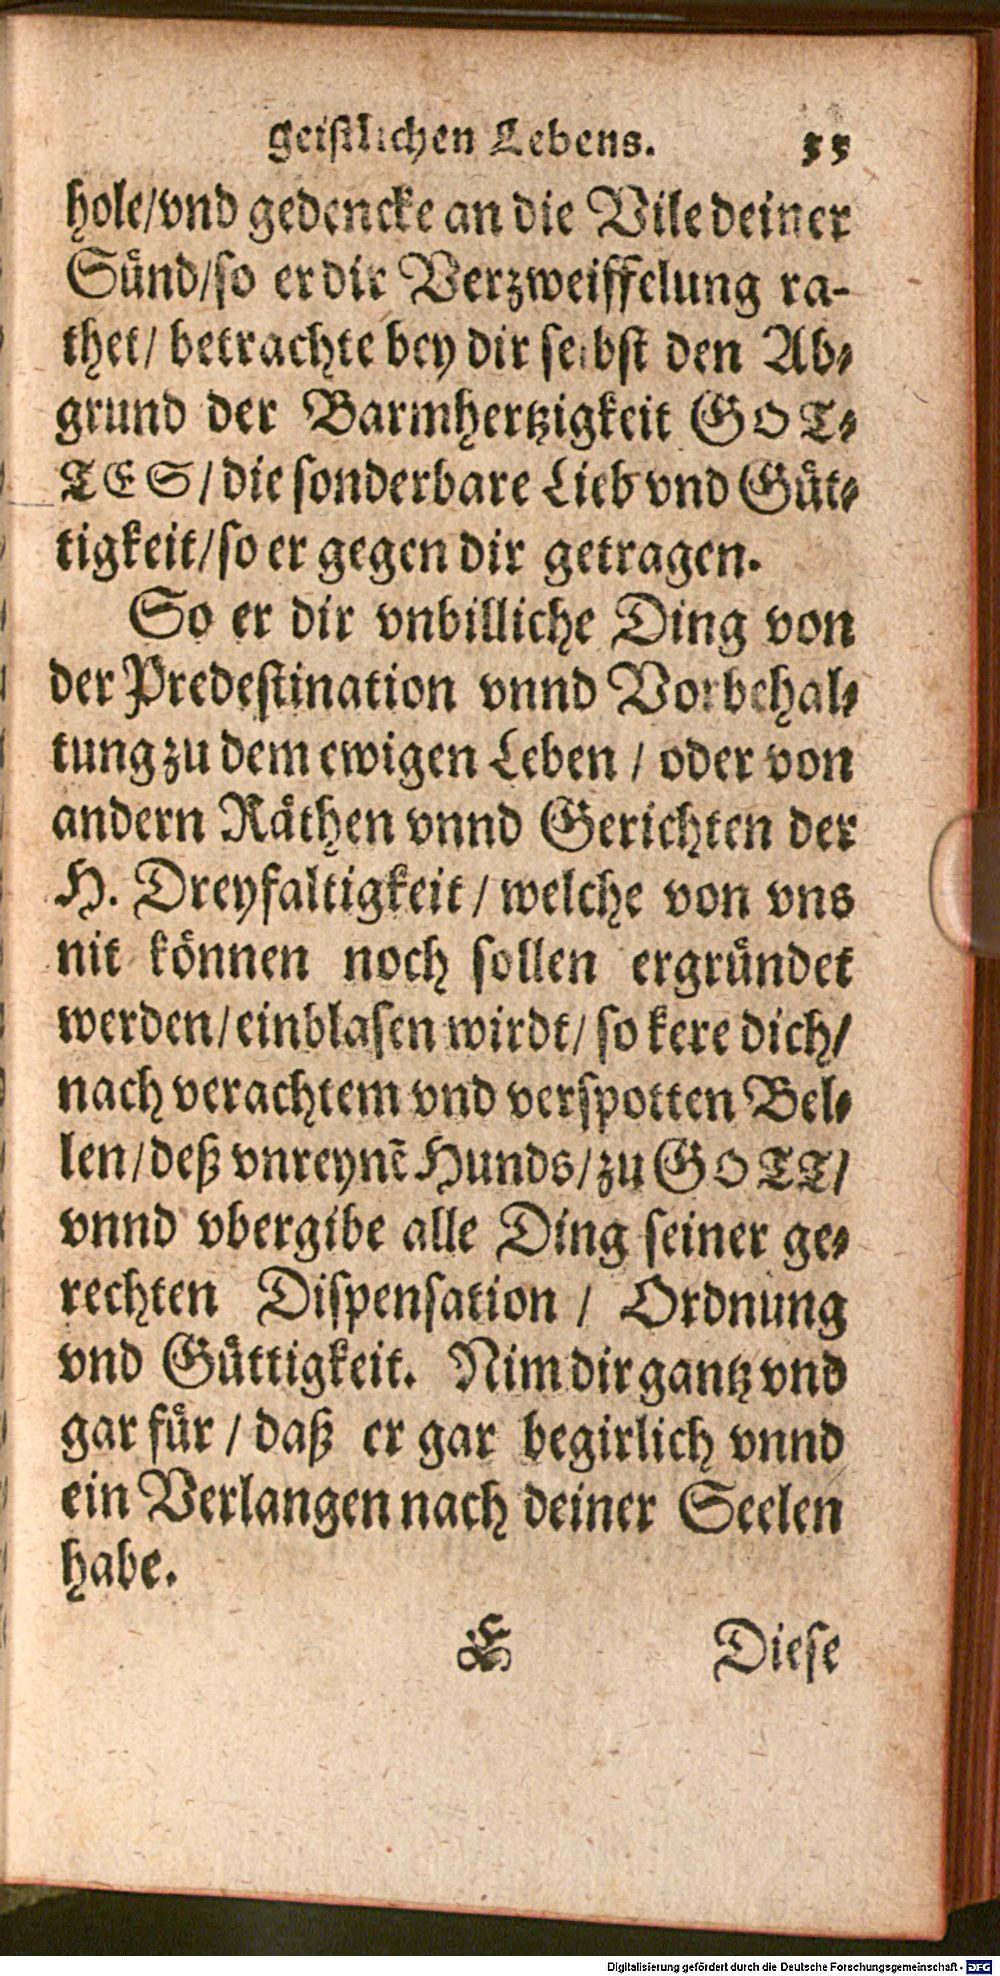 geistlichen Lebens. 55
hole/vnd gedencke an die Vile deiner
Sünd/so er dir Verzweiffelung ra-
thet/ betrachte bey dir selbst den Ab-
grund der Barmhertzigkeit GOT-
TES/die sonderbare Lieb vnd Güt-
tigkeit/so er gegen dir getragen.
So er dir vnbilliche Ding von
der Predestination vnnd Vorbehal-
tung zu dem ewigen Leben / oder von
andern Räthen vnnd Gerichten der
H. Dreyfaltigkeit / welche von vns
nit können noch sollen ergründet
werden/einblasen wirdt/ so kere dich/
nach verachtem vnd verspotten Bel-
len/deß vnreynẽ Hunds/zu GOTT/
vnnd vbergibe alle Ding seiner ge-
rechten Dispensation / Ordnung
vnd Güttigkeit. Nim dir gantz vnd
gar für / daß er gar begirlich vnnd
ein Verlangen nach deiner Seelen
habe.
E Diese
Digitalisierung gefördert durch die Deutsche Forschungsgemeinschaft - DFG